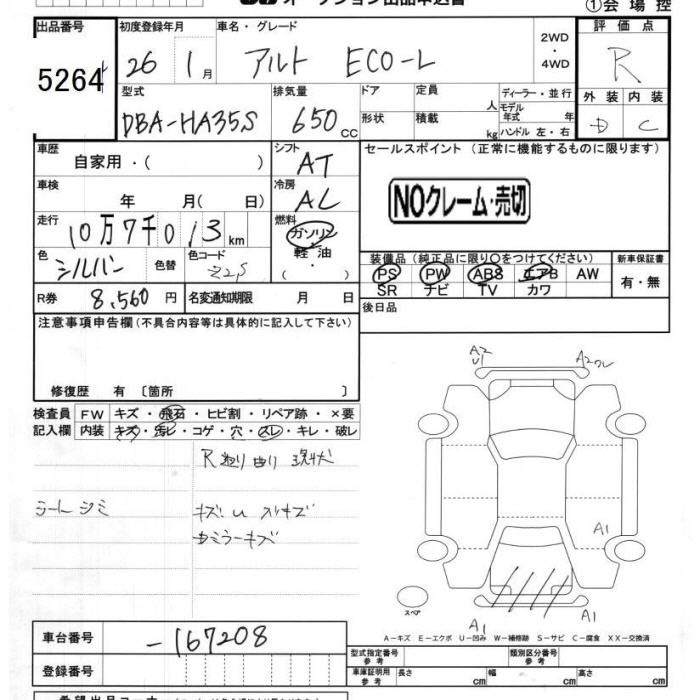 オークション出品申込書
①会場控
出品番号 5264
初度登録年月 26 1月
車名・グレード アルト ECO-L
2WD・4WD
評価点 R
外装 D 内装 C
型式 DBA-HA35S
排気量 650 cc
ドア 形状
定員 人
積載 kg
ディーラー・並行
モデル年式 年
ハンドル 左・右
車歴 自家用・( )
シフト AT
車検 年 月( 日)
冷房 AL
走行 10万7千013 km
燃料 ガソリン・軽油・( )
色 シルバー 色替
色コード Z2S
R券 8,560 円
名変通知期限 月 日
セールスポイント（正常に機能するものに限ります）
NOクレーム・売切
装備品（純正品に限り○をつけてください）
新車保証書
PS PW ABS エアB AW
有・無
SR ナビ TV カワ
後日品
注意事項申告欄（不具合内容等は具体的に記入して下さい）
修復歴 有〔箇所 〕
検査員記入欄
FW キズ・飛石・ヒビ割・リペア跡・×要
内装 キズ・汚レ・コゲ・穴・スレ・キレ・破レ
シート シミ
A2
U1
A1
A1
A1
スペア
A－キズ E－エクボ U－凹み W－補修跡 S－サビ C－腐食 XX－交換済
車台番号 -167208
登録番号
型式指定番号 参考
類別区分番号 参考
車庫証明用 参考 長さ cm 幅 cm 高さ cm
希望出品コーナー